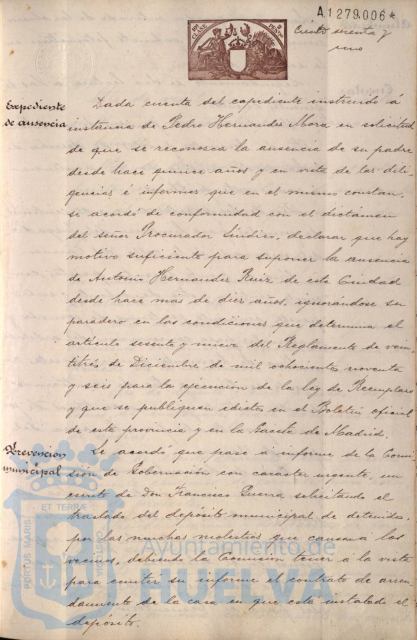 A1279.006*
Ciento sesenta y
uno
Expediente
de ausencia
Dada cuenta del expediente instruido á
instancia de Pedro Hernandez Mora en solicitud
de que se reconozca la ausencia de su padre
desde hace quince años y en vista de las dili-
gencias é informes que en el mismo constan,
se acordó de conformidad con el dictámen
del señor Procurador Síndico, declarar que hay
motivo suficiente para suponer la ausencia
de Antonio Hernandez Ruiz de esta Ciudad
desde hace más de diez años, ignorándose su
paradero en las condiciones que determina el
artículo sesenta y nueve del Reglamento de vein-
titrés de Diciembre de mil ochocientos noventa
y seis para la ejecucion de la ley de Reemplazo
y que se publiquen edictos en el Boletin oficial
de esta provincia y en la Gaceta de Madrid.
Prevencion
municipal
Se acordó que pase á informe de la Comi-
sión de Gobernación con caracter urgente, un
escrito de Don Francisco Guerra solicitando el
traslado del depósito municipal de detenidos,
por las muchas molestias que causa á los
vecinos, debiendo la Comision tener á la vista
para emitir su informe el contrato de arren-
damiento de la casa en que está instalado el
depósito.
PORTUS MARIS
ET TERRAE
Ayuntamiento de
HUELVA